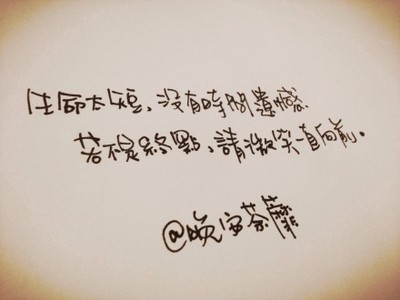 生命太短，沒有時間遺憾
若不是終點，請微笑一直向前。
@晚安荼蘼